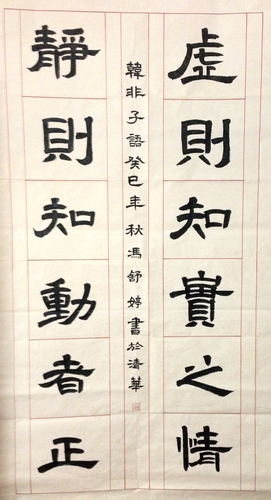 虛則知實之情
靜則知動者正
韓非子語癸巳年秋馮舒婷書於清華